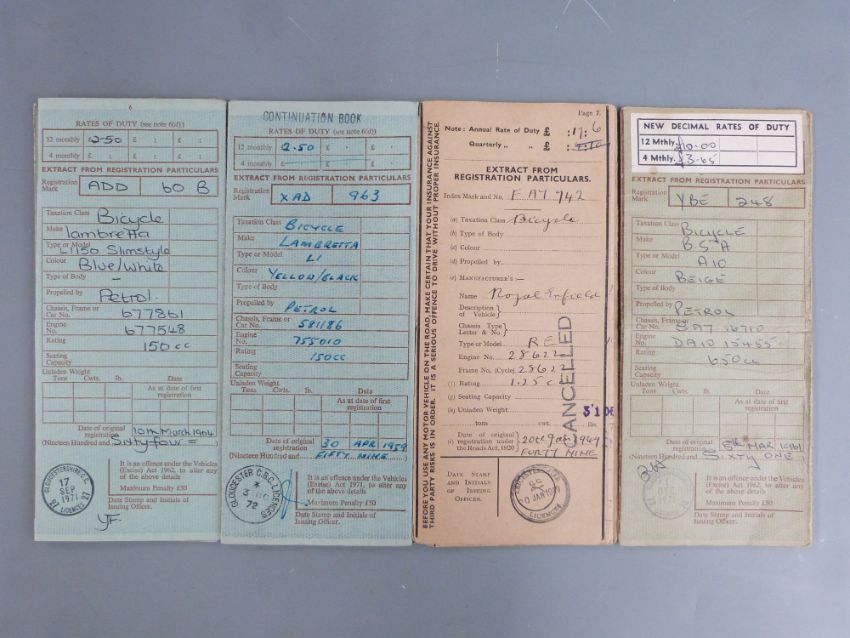 6
RATES OF DUTY (see note 6(d))
12 monthly £ 2-50 £ :
4 monthly £ : £ :
EXTRACT FROM REGISTRATION PARTICULARS
Registration Mark ADD 60 B
Taxation Class Bicycle
Make lambretta
Type or Model LI150 Slimstyle
Colour Blue/White
Type of Body -
Propelled by Petrol.
Chassis, Frame or Car No. 677861
Engine No. 677548
Rating 150cc
Seating Capacity
Unladen Weight Date
Tons Cwts. lb. As at date of first registration
Date of original registration 10th March 1964
(Nineteen Hundred and Sixty four =
It is an offence under the Vehicles
(Excise) Act 1962, to alter any
of the above details
Maximum Penalty £50
Date Stamp and Initials of
Issuing Officer.
GLOUCESTERSHIRE C.C.
17
SEP
1971
LICENCES
YF.
CONTINUATION BOOK
RATES OF DUTY (see note 6(d))
12 monthly 2.50 £ : £ :
4 monthly £ : £ :
EXTRACT FROM REGISTRATION PARTICULARS
Registration Mark XAD 963
Taxation Class BICYCLE
Make LAMBRETTA
Type or Model LI
Colour YELLOW/BLACK
Type of Body
Propelled by PETROL
Chassis, Frame or Car No. 581186
Engine No. 755010
Rating 150cc
Seating Capacity
Unladen Weight Date
Tons Cwts. lb. As at date of first registration
Date of original registration 30 APR 1959
(Nineteen Hundred and FIFTY NINE
It is an offence under the
Vehicles (Excise) Act 1971, to
alter any of the above details
Maximum Penalty £50
Date Stamp and Initials of
Issuing Officer.
GLOUCESTER C.B.C. LICENCES
72
BEFORE YOU USE ANY MOTOR VEHICLE ON THE ROAD, MAKE CERTAIN THAT YOUR INSURANCE AGAINST
THIRD PARTY RISKS IS IN ORDER. IT IS A SERIOUS OFFENCE TO DRIVE WITHOUT PROPER INSURANCE.
Page 7.
Note: Annual Rate of Duty £ : 17 : 6
Quarterly " " £
EXTRACT FROM
REGISTRATION PARTICULARS.
Index Mark and No. FAY 742
(a) Taxation Class Bicycle
(b) Type of Body
(c) Colour
(d) Propelled by
(e) MANUFACTURER'S:-
Name Royal Enfield
Description of Vehicle
Chassis Type Letter & No.
Type or Model RE
Engine No. 28622
Frame No. (Cycle) 28622
(f) Rating 1.25 cc
(g) Seating Capacity
(h) Unladen Weight
tons cwt.
Date of original
(i) registration under
the Roads Act, 1920
FORTY NINE
CANCELLED
DATE STAMP
AND INITIALS
OF ISSUING
OFFICER.
LICENCES
NEW DECIMAL RATES OF DUTY
12 Mthly. £10.00
4 Mthly. £3-65
EXTRACT FROM REGISTRATION PARTICULARS
Registration Mark YBE 248
Taxation Class BICYCLE
Make B.S.A
Type or Model A10
Colour BEIGE
Type of Body
Propelled by PETROL
Chassis, Frame or Car No. GA7 16710
Engine No. DA10 15455
Rating 650cc
Seating Capacity
Unladen Weight Date
Tons Cwts. lb. As at date of first registration
Date of original registration 8th MAR 1961
(Nineteen Hundred and SIXTY ONE
265
It is an offence under the Vehicles
(Excise) Act, 1962, to alter any
of the above details
Maximum Penalty £50
Date Stamp and Initials of
Issuing Officer.